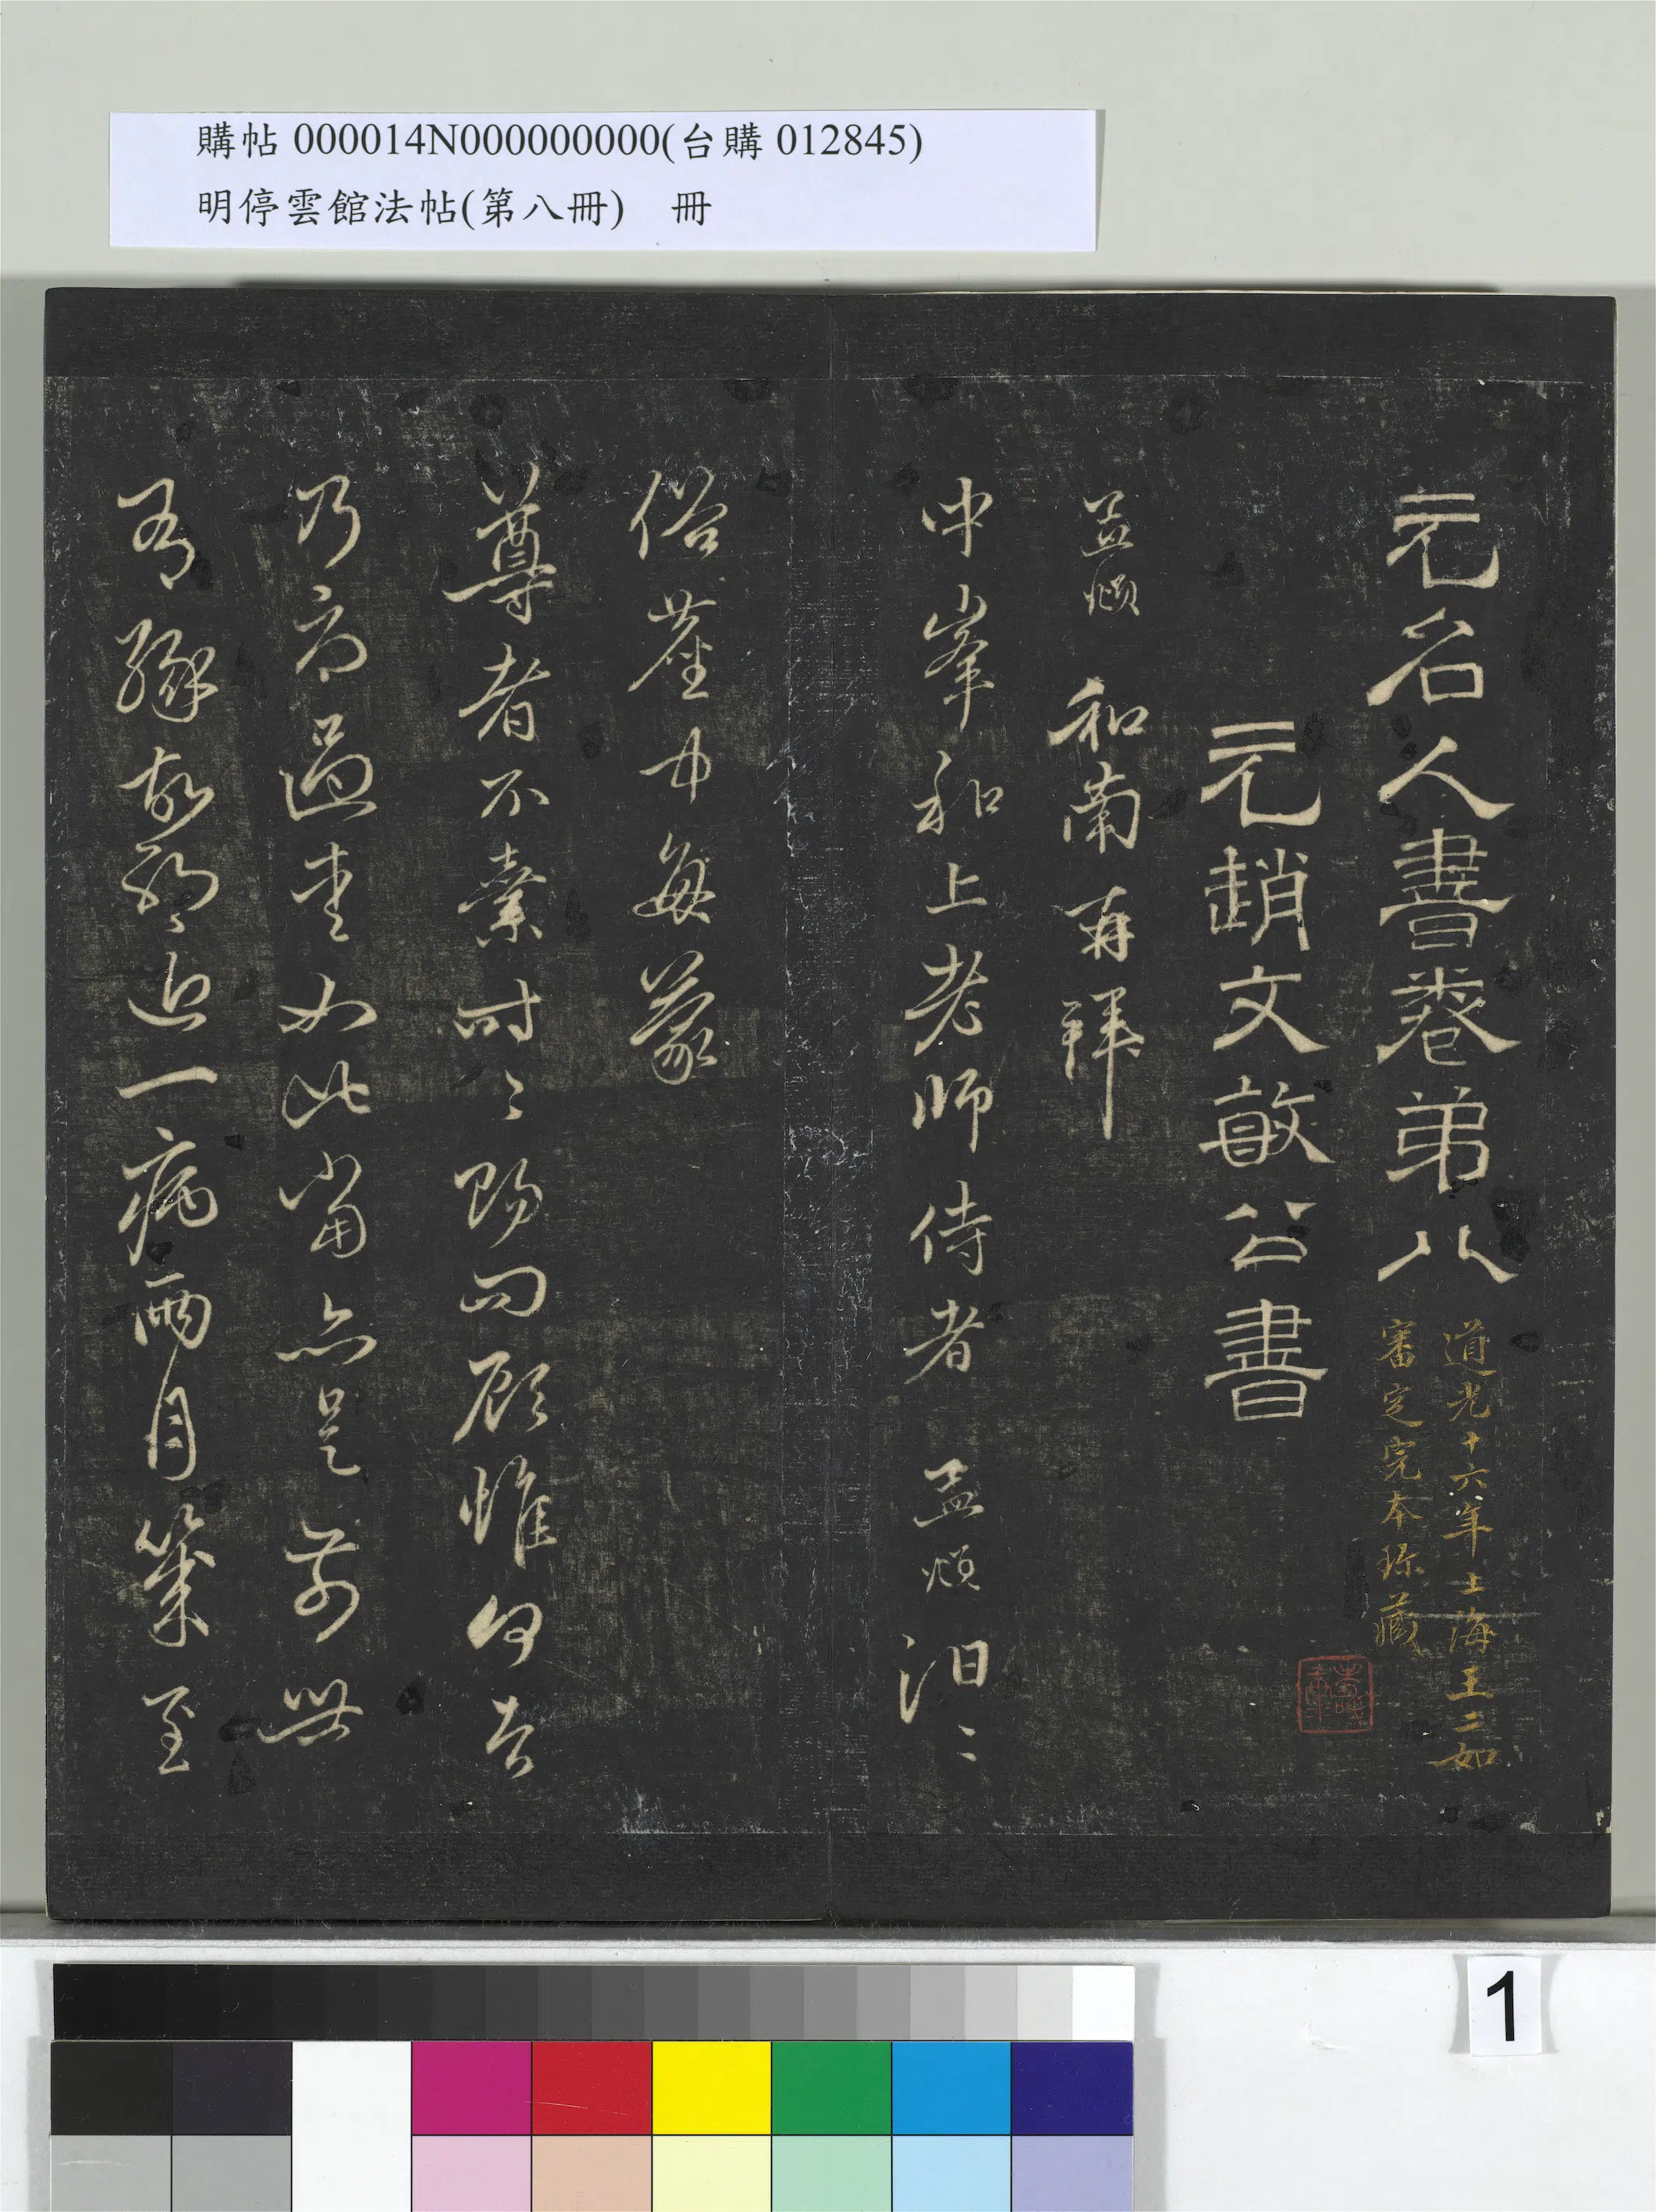 購帖 000014N000000000(台購 012845)
明停雲館法帖(第八冊) 冊
元名人書卷弟八
道光十六年上海王二如
審定完本珍藏
元趙文敏公書
孟頫 和南再拜
中峯和上老師侍者 孟頫 汨〻
俗塵中每蒙
尊者不棄時〻賜問顧惟何者
乃富過重如此當亦是前世
有緣故耶近一病兩月幾至
1